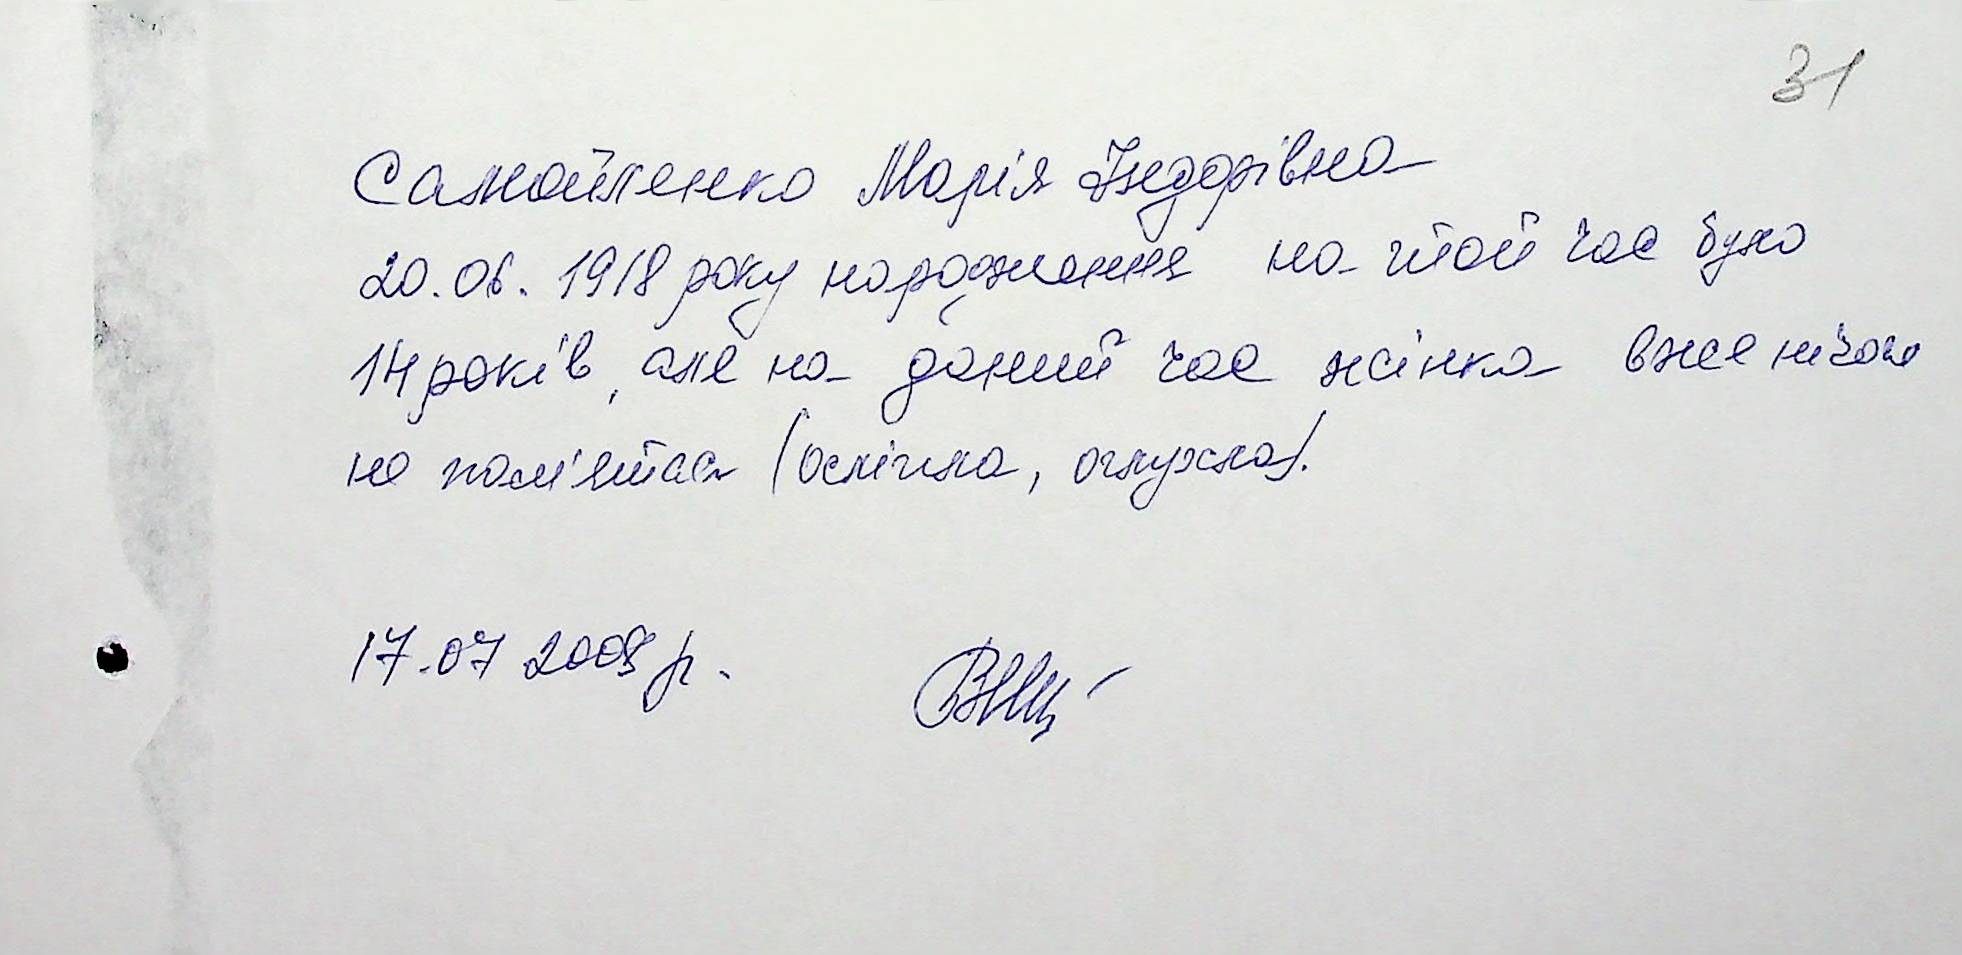 31
Самойленко Марія Ізидорівна
20.06.1918 року народження на той час було
14 років, але на даний час жінка вже нічого
не пам'ятає (осліпла, оглухла).
17.07 2008 р.